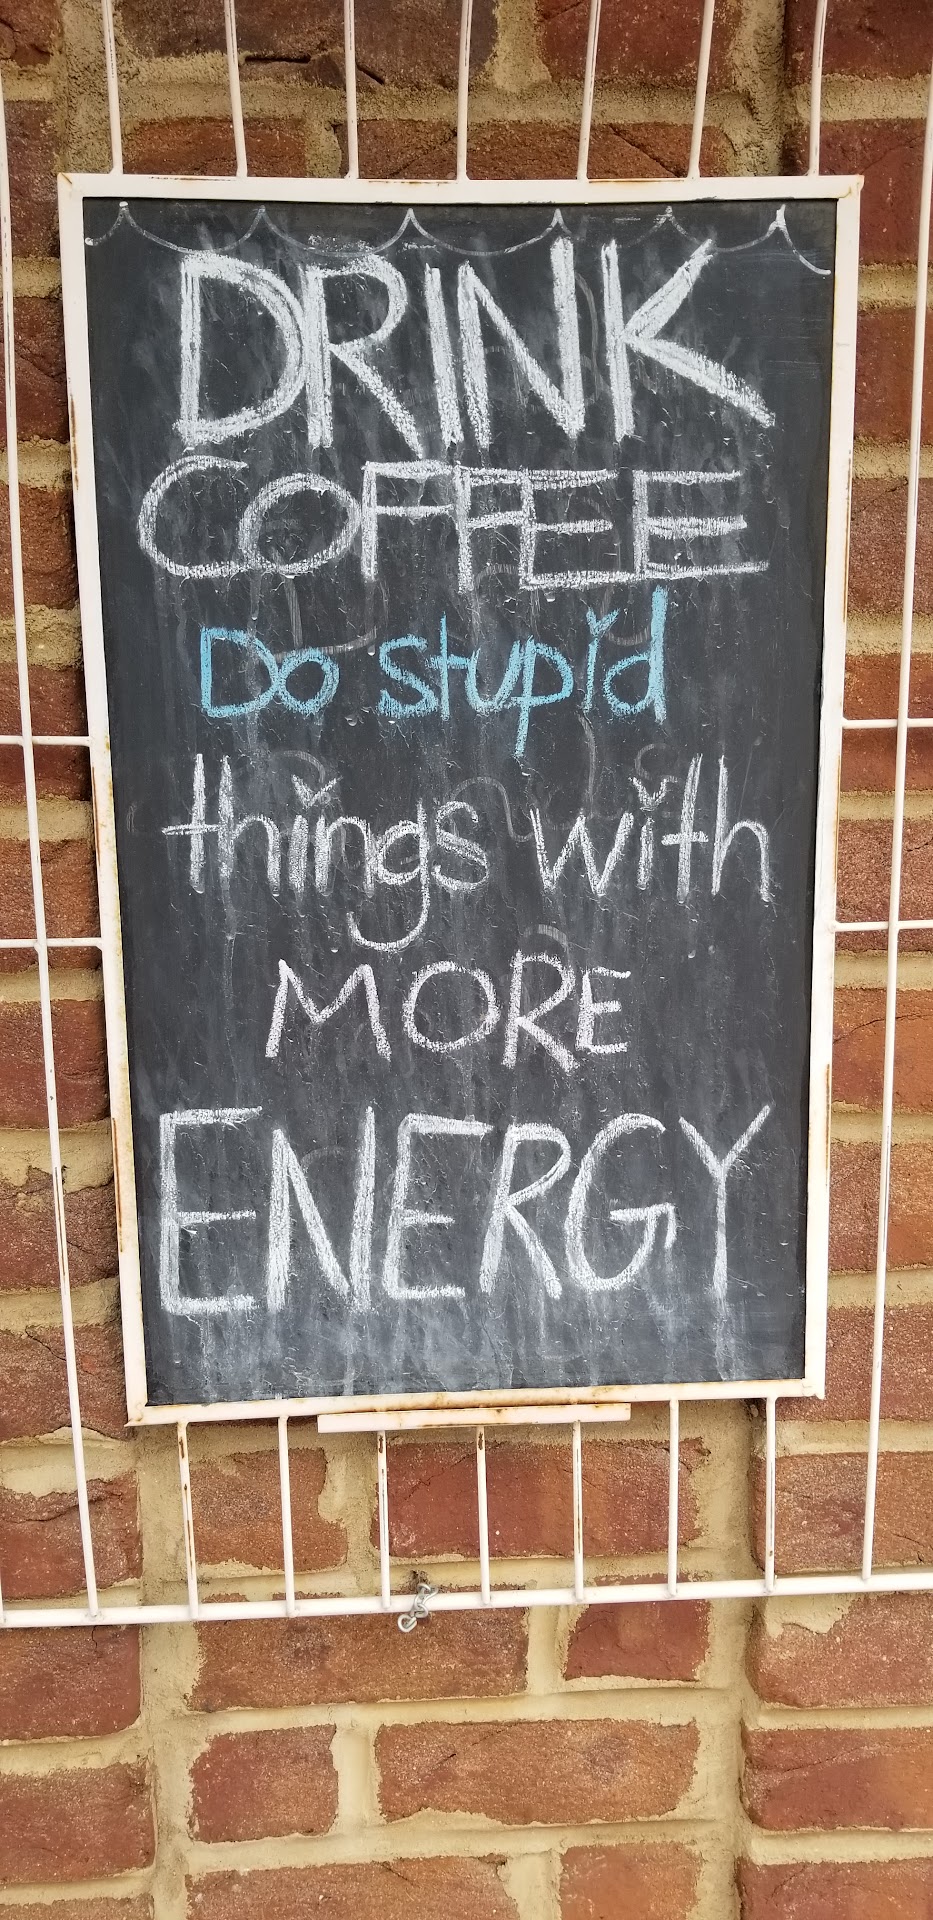 DRINK
COFFEE
Do stupid
things with
MORE
ENERGY